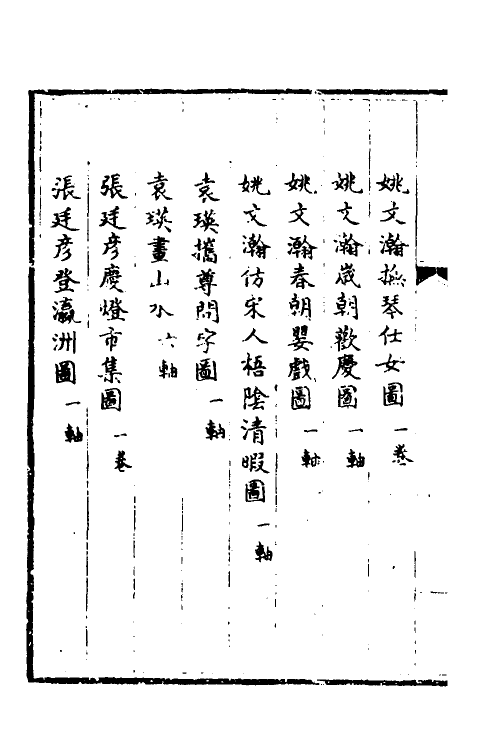 姚文瀚撫琴仕女圖一卷
姚文瀚歲朝歡慶圖一軸
姚文瀚春朝嬰戲圖一軸
姚文瀚仿宋人梧陰清暇圖一軸
袁瑛攜尊問字圖一軸
袁瑛畫山水六軸
張廷彥慶燈市集圖一卷
張廷彥登瀛洲圖一軸